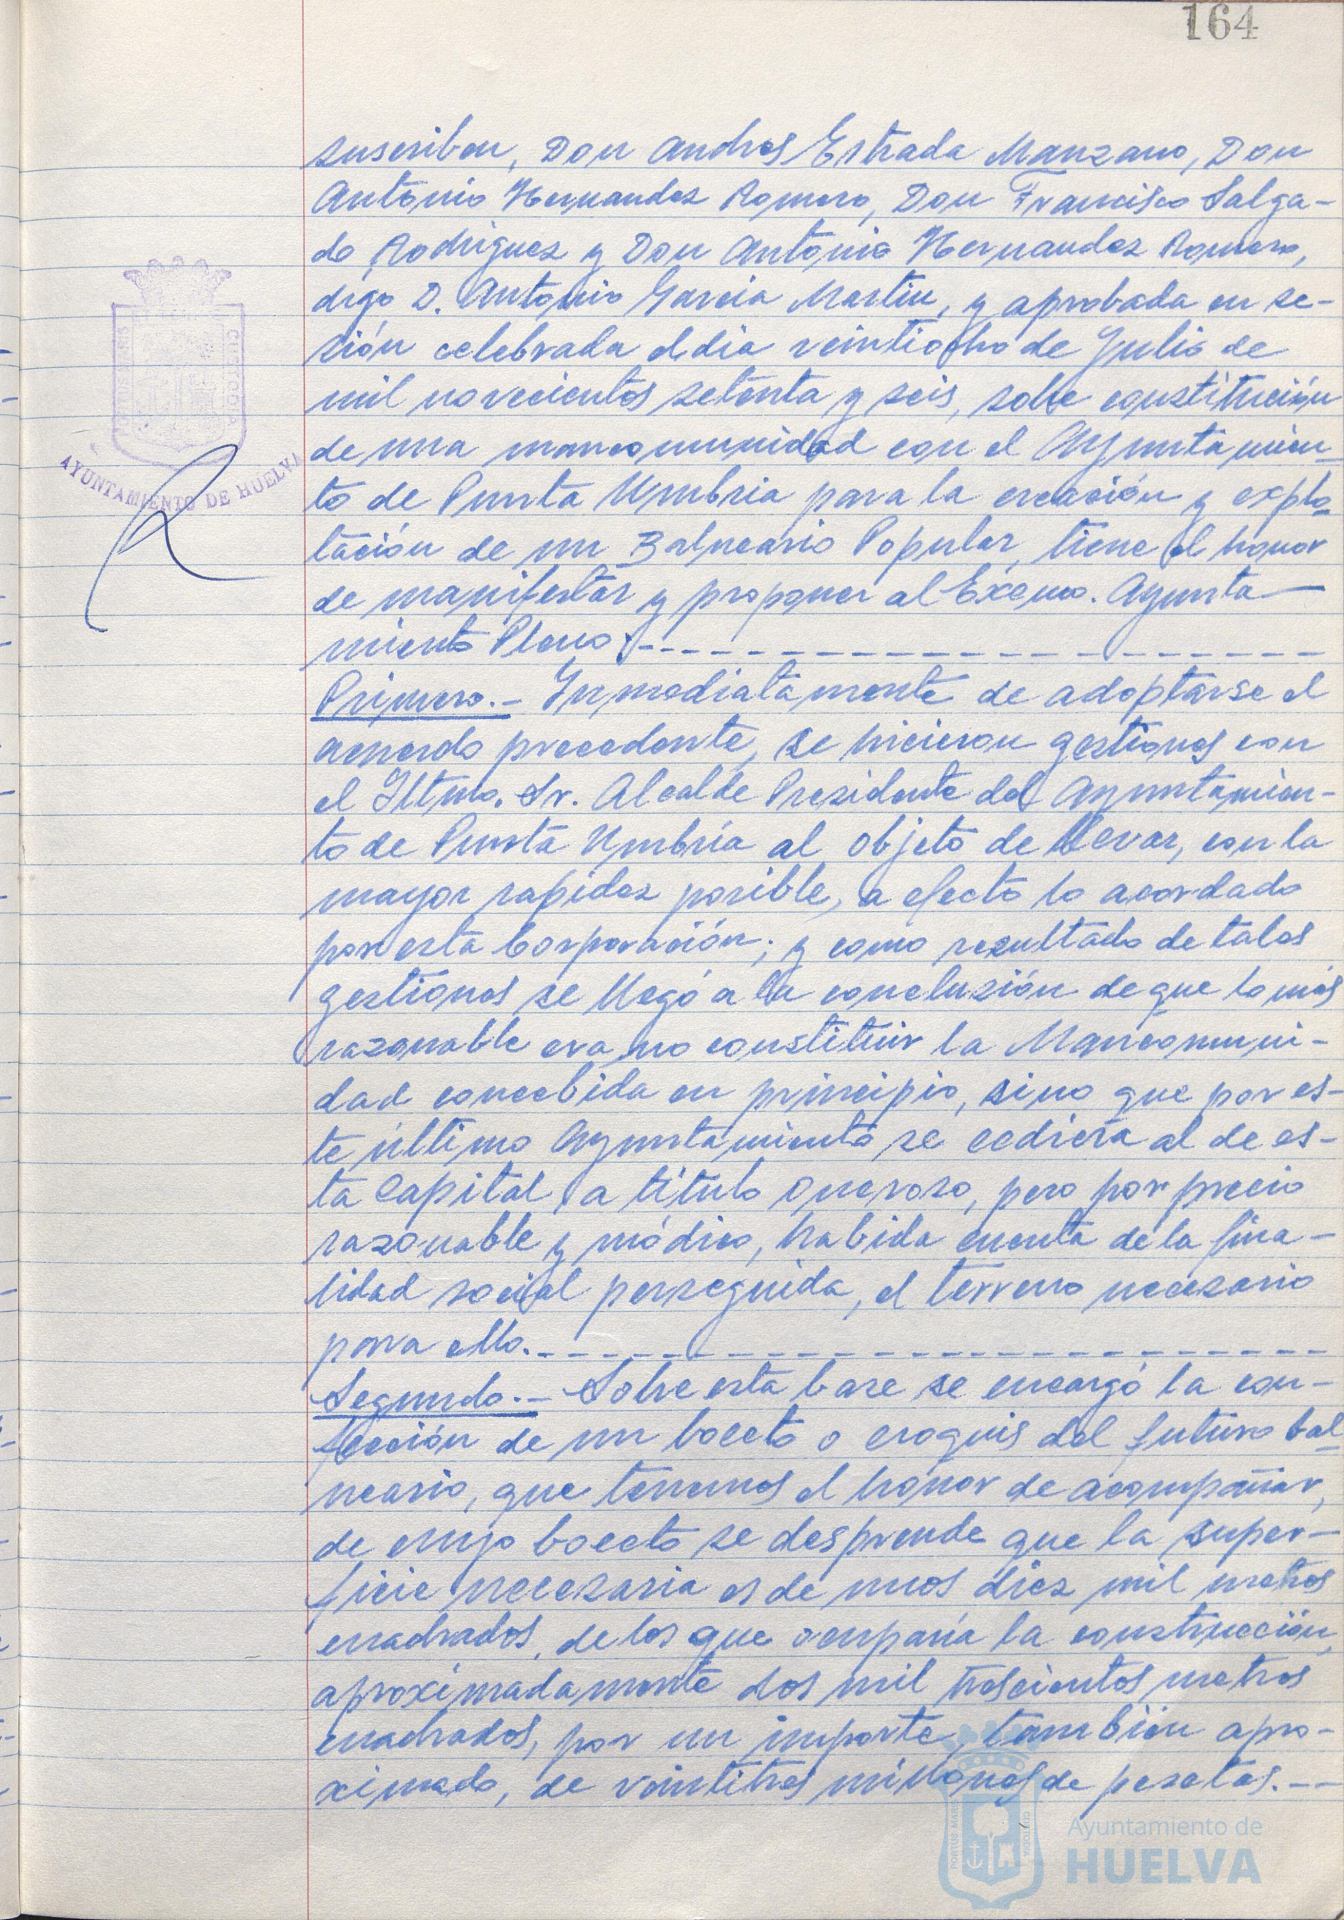 164
suscriben, Don Andres Estrada Manzano, Don
Antonio Hernandez Romero, Don Francisco Salga-
do Rodriguez y Don Antonio Hernandez Romero,
digo D. Antonio Garcia Martin, y aprobada en se-
sión celebrada el dia veintiocho de Julio de
mil novecientos setenta y seis, sobre constitución
de una mancomunidad con el Ayuntamien-
to de Punta Umbria para la creación y explo-
tación de un Balneario Popular, tiene el honor
de manifestar y proponer al Excmo. Ayunta-
miento Pleno:
Primero.- Inmediatamente de adoptarse el
acuerdo precedente, se hicieron gestiones con
el Iltmo. Sr. Alcalde Presidente del Ayuntamien-
to de Punta Umbría al objeto de llevar, con la
mayor rapidez posible, a efecto lo acordado
por esta Corporación; y como resultado de tales
gestiones se llegó a la conclusión de que lo más
razonable era no constituir la Mancomuni-
dad concebida en principio, sino que por es-
te último Ayuntamiento se cediera al de es-
ta Capital, a título oneroso, pero por precio
razonable y módico, habida cuenta de la fina-
lidad social perseguida, el terreno necesario
para ello.
Segundo.- Sobre esta base se encargó la con-
fección de un boceto o croquis del futuro bal-
neario, que tenemos el honor de acompañar,
de cuyo boceto se desprende que la super-
ficie necesaria es de unos diez mil metros
cuadrados, de los que ocuparía la construcción,
aproximadamente dos mil trescientos metros
cuadrados, por un importe, tambièn apro-
ximado, de veintitres millones de pesetas.--
PORTUS MARIS
CUSTODIA
AYUNTAMIENTO DE HUELVA
PORTUS MARIS
CUSTODIA
Ayuntamiento de
HUELVA